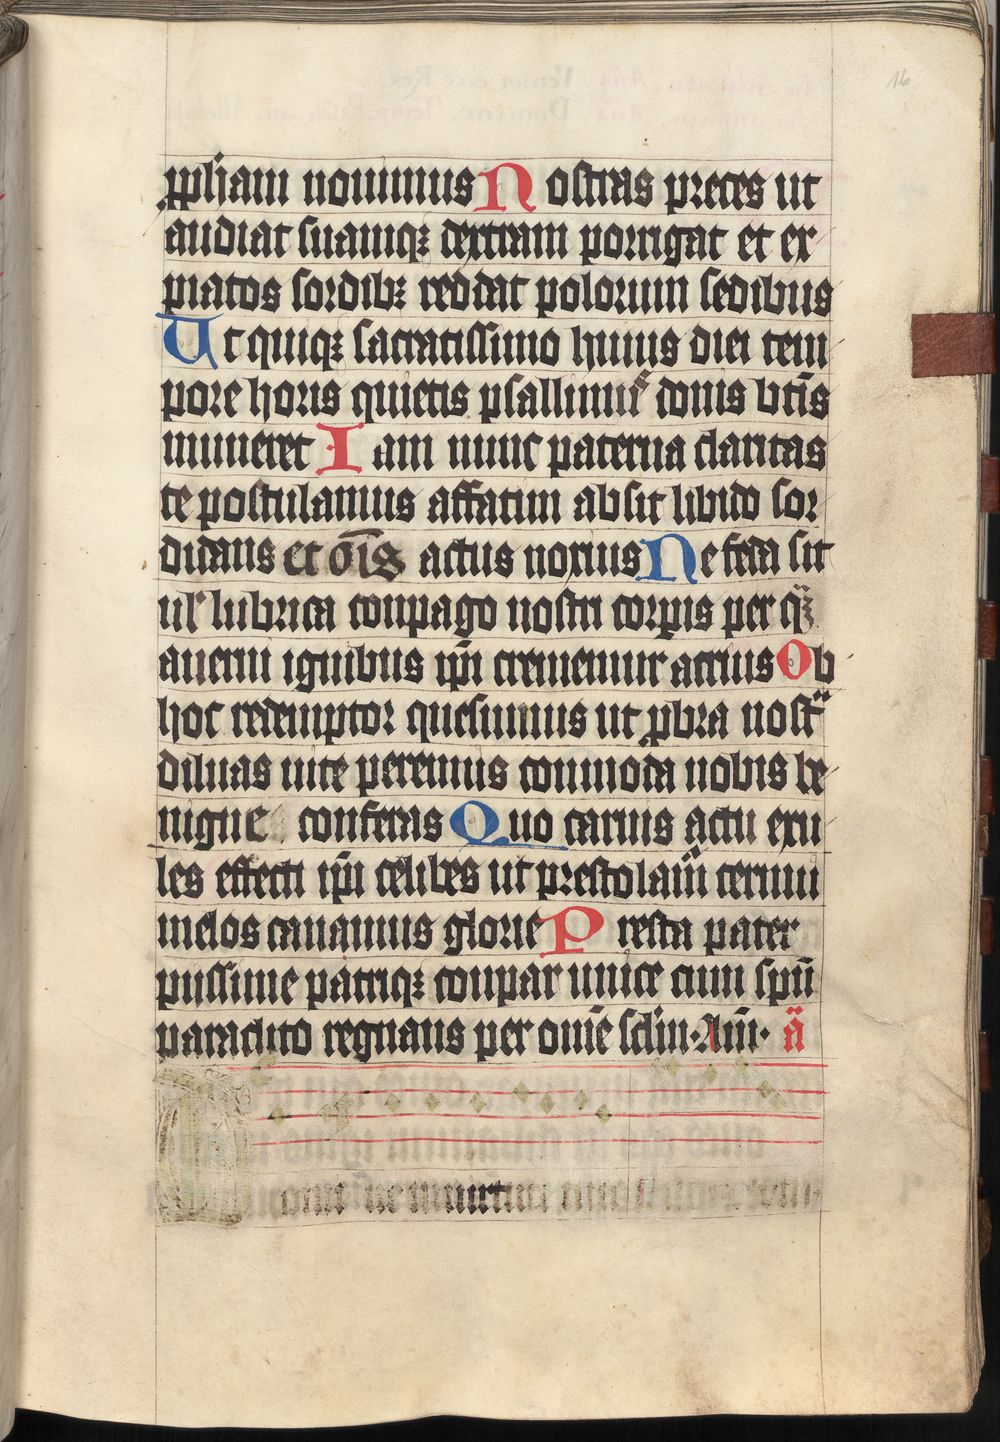 16
pp̄hām nouimus Nostras preces ut
audiat suamqꝫ dextram porrigat et ex
piatos sordibꝫ reddat polorum sedibus
Ut quiqꝫ sacratissimo huius diei tem
pore horis quietis psallimus donis btīs
muneret Iam nunc paterna claritas
te postulamus affatim absit libido sor
didans et oīs actus noxius Ne feda sit
ul̓ lubrica conpago nostri corpis per qꝫ
auerni ignibus ipī crememur acrius Ob
hoc redemptor quesumus ut ꝓbra nostͣ
diluas uite perennis commoda nobis be
nigne conferas Quo carnis actu exu
les effecti ipī celibes ut prestolam̄ cernui
melos canamus glorie Presta pater
pijssime patriqꝫ conpar unice cum spū
paraclito regnans per omē sclm̄·Am̄· ā